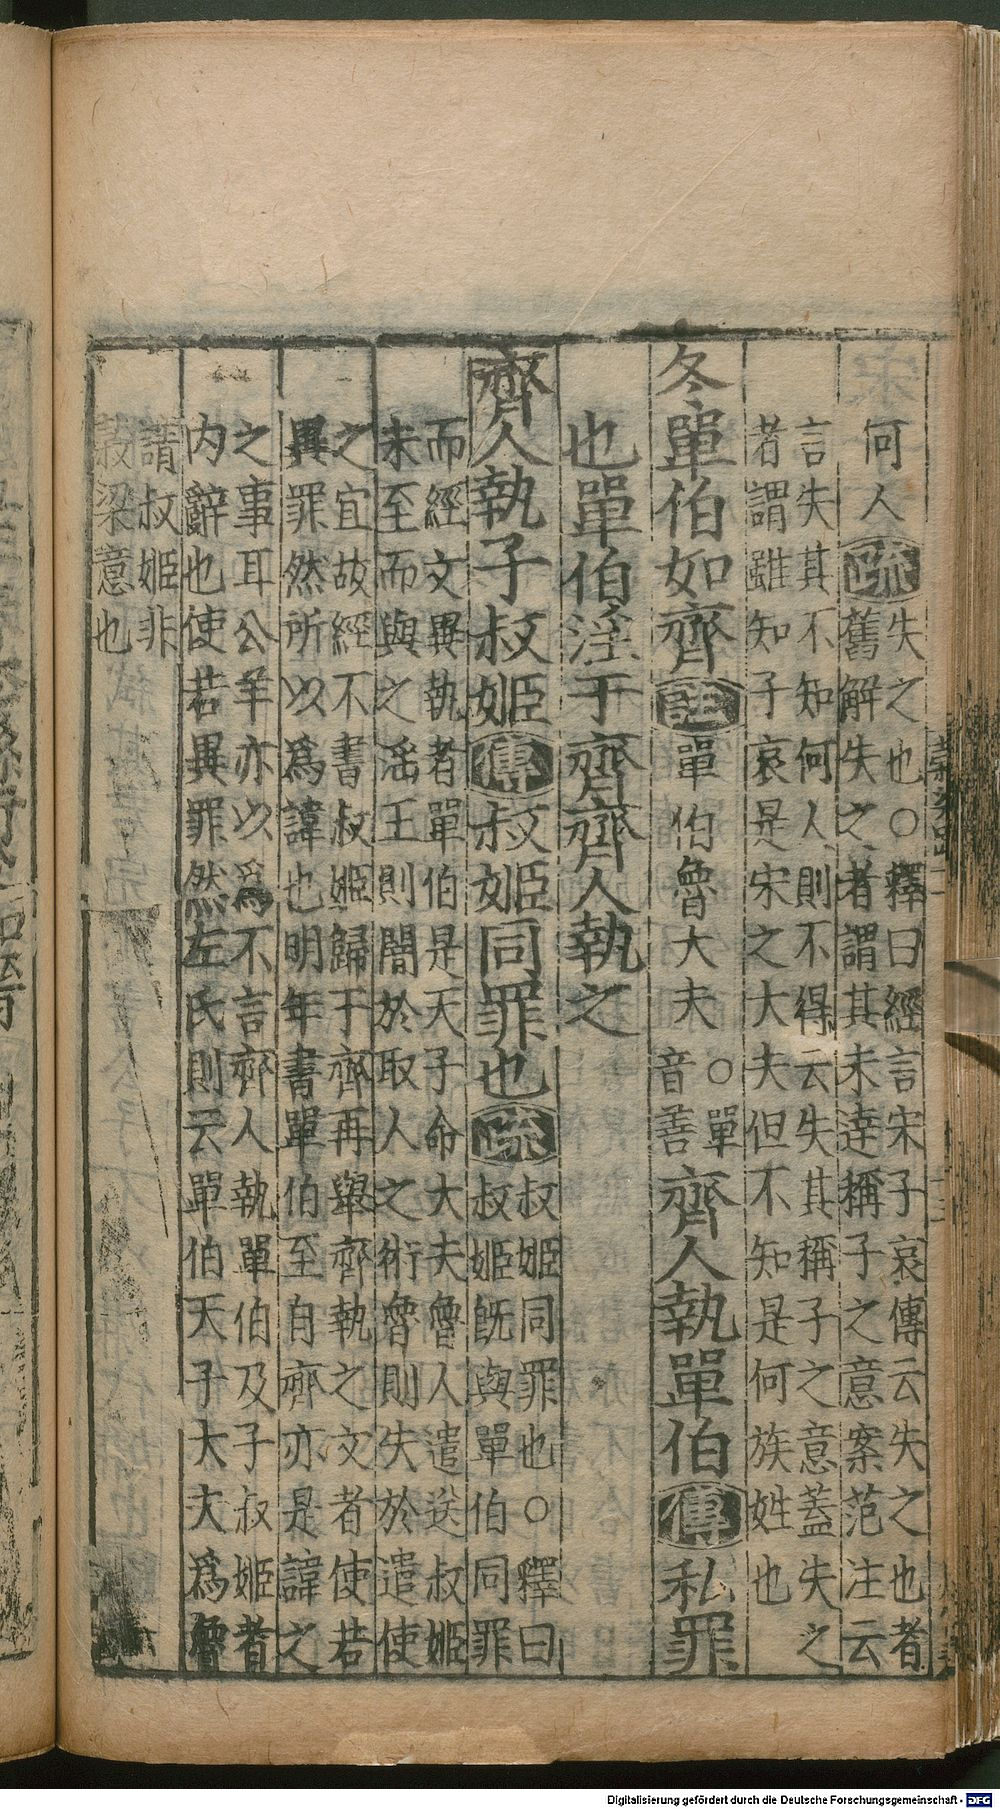 何人疏失之也○釋曰經言宋子哀傳云失之也者
舊解失之者謂其未達稱子之意案范注云
言失其不知何人則不得云失其稱子之意蓋失之
者謂雖知子哀是宋之大夫但不知是何族姓也
冬單伯如齊註單伯魯大夫○單音善齊人執單伯傳私罪
也單伯淫于齊齊人執之
齊人執子叔姬傳叔姬同罪也疏叔姬同罪也○釋曰
叔姬旣與單伯同罪
而經文異執者單伯是天子命大夫魯人遣送叔姬
未至而與之淫王則闇於取人之術魯則失於遣使
之宜故經不書叔姬歸于齊再舉齊執之文者使若
異罪然所以爲諱也明年書單伯至自齊亦是諱之
之事耳公羊亦以爲不言齊人執單伯及子叔姬者
内辭也使若異罪然左氏則云單伯天子大夫爲魯
謂叔姬非
穀梁意也
Digitalisierung gefördert durch die Deutsche Forschungsgemeinschaft - DFG